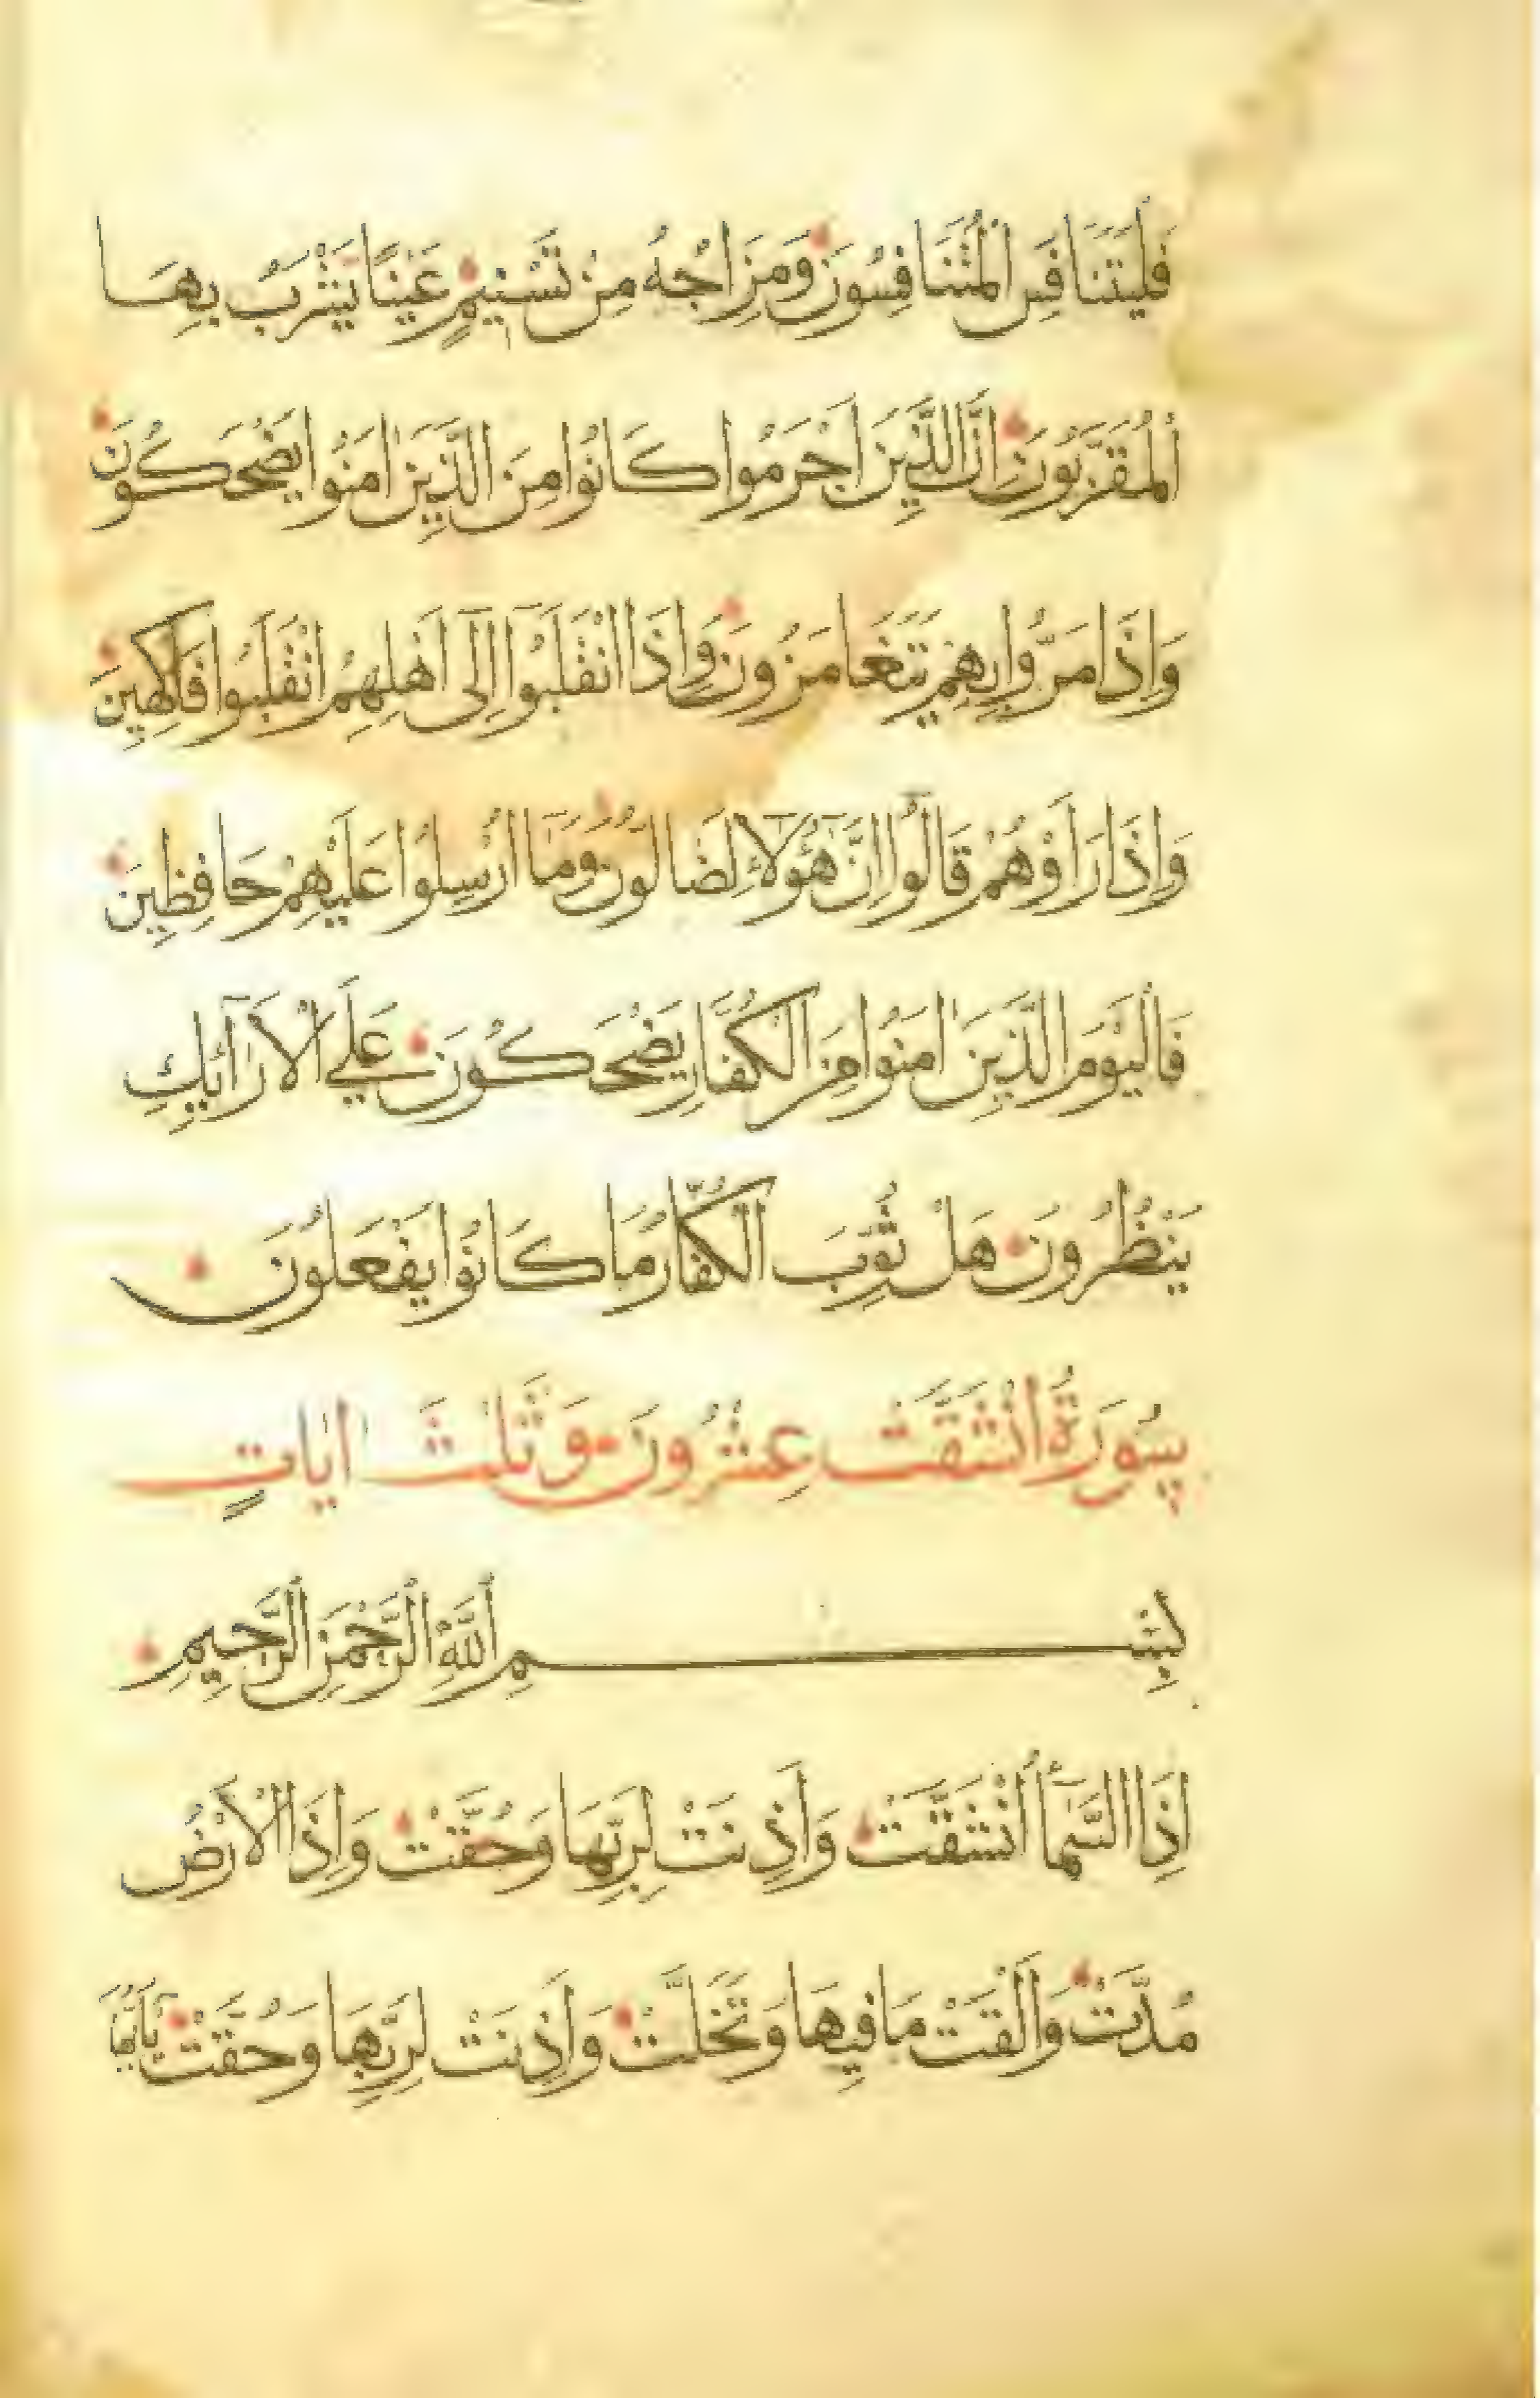 فَلْيَتَنَافَسِ الْمُتَنَافِسُونَ وَمِزَاجُهُ مِنْ تَسْنِيمٍ عَيْنًا يَشْرَبُ بِهَا
الْمُقَرَّبُونَ اِنَّ الَّذِينَ اَجْرَمُوا كَانُوا مِنَ الَّذِينَ اٰمَنُوا يَضْحَكُونَ
وَاِذَا مَرُّوا بِهِمْ يَتَغَامَزُونَ وَاِذَا انْقَلَبُوٓا اِلٰٓى اَهْلِهِمُ انْقَلَبُوا فَاكِهِينَ
وَاِذَا رَاَوْهُمْ قَالُوٓا اِنَّ هٰٓؤُلَآءِ لَضَالُّونَ وَمَآ اُرْسِلُوا عَلَيْهِمْ حَافِظِينَ
فَالْيَوْمَ الَّذِينَ اٰمَنُوا مِنَ الْكُفَّارِ يَضْحَكُونَ عَلَى الْاَرَآئِكِ
يَنْظُرُونَ هَلْ ثُوِّبَ الْكُفَّارُ مَا كَانُوا يَفْعَلُونَ
سُورَةُ انْشَقَّتْ عِشْرُونَ وَثَلٰثَ اٰيَاتٍ
بِسْمِ اللَّهِ الرَّحْمٰنِ الرَّحِيمِ
اِذَا السَّمَآءُ انْشَقَّتْ وَاَذِنَتْ لِرَبِّهَا وَحُقَّتْ وَاِذَا الْاَرْضُ
مُدَّتْ وَاَلْقَتْ مَا فِيهَا وَتَخَلَّتْ وَاَذِنَتْ لِرَبِّهَا وَحُقَّتْ يَآ اَيُّهَا